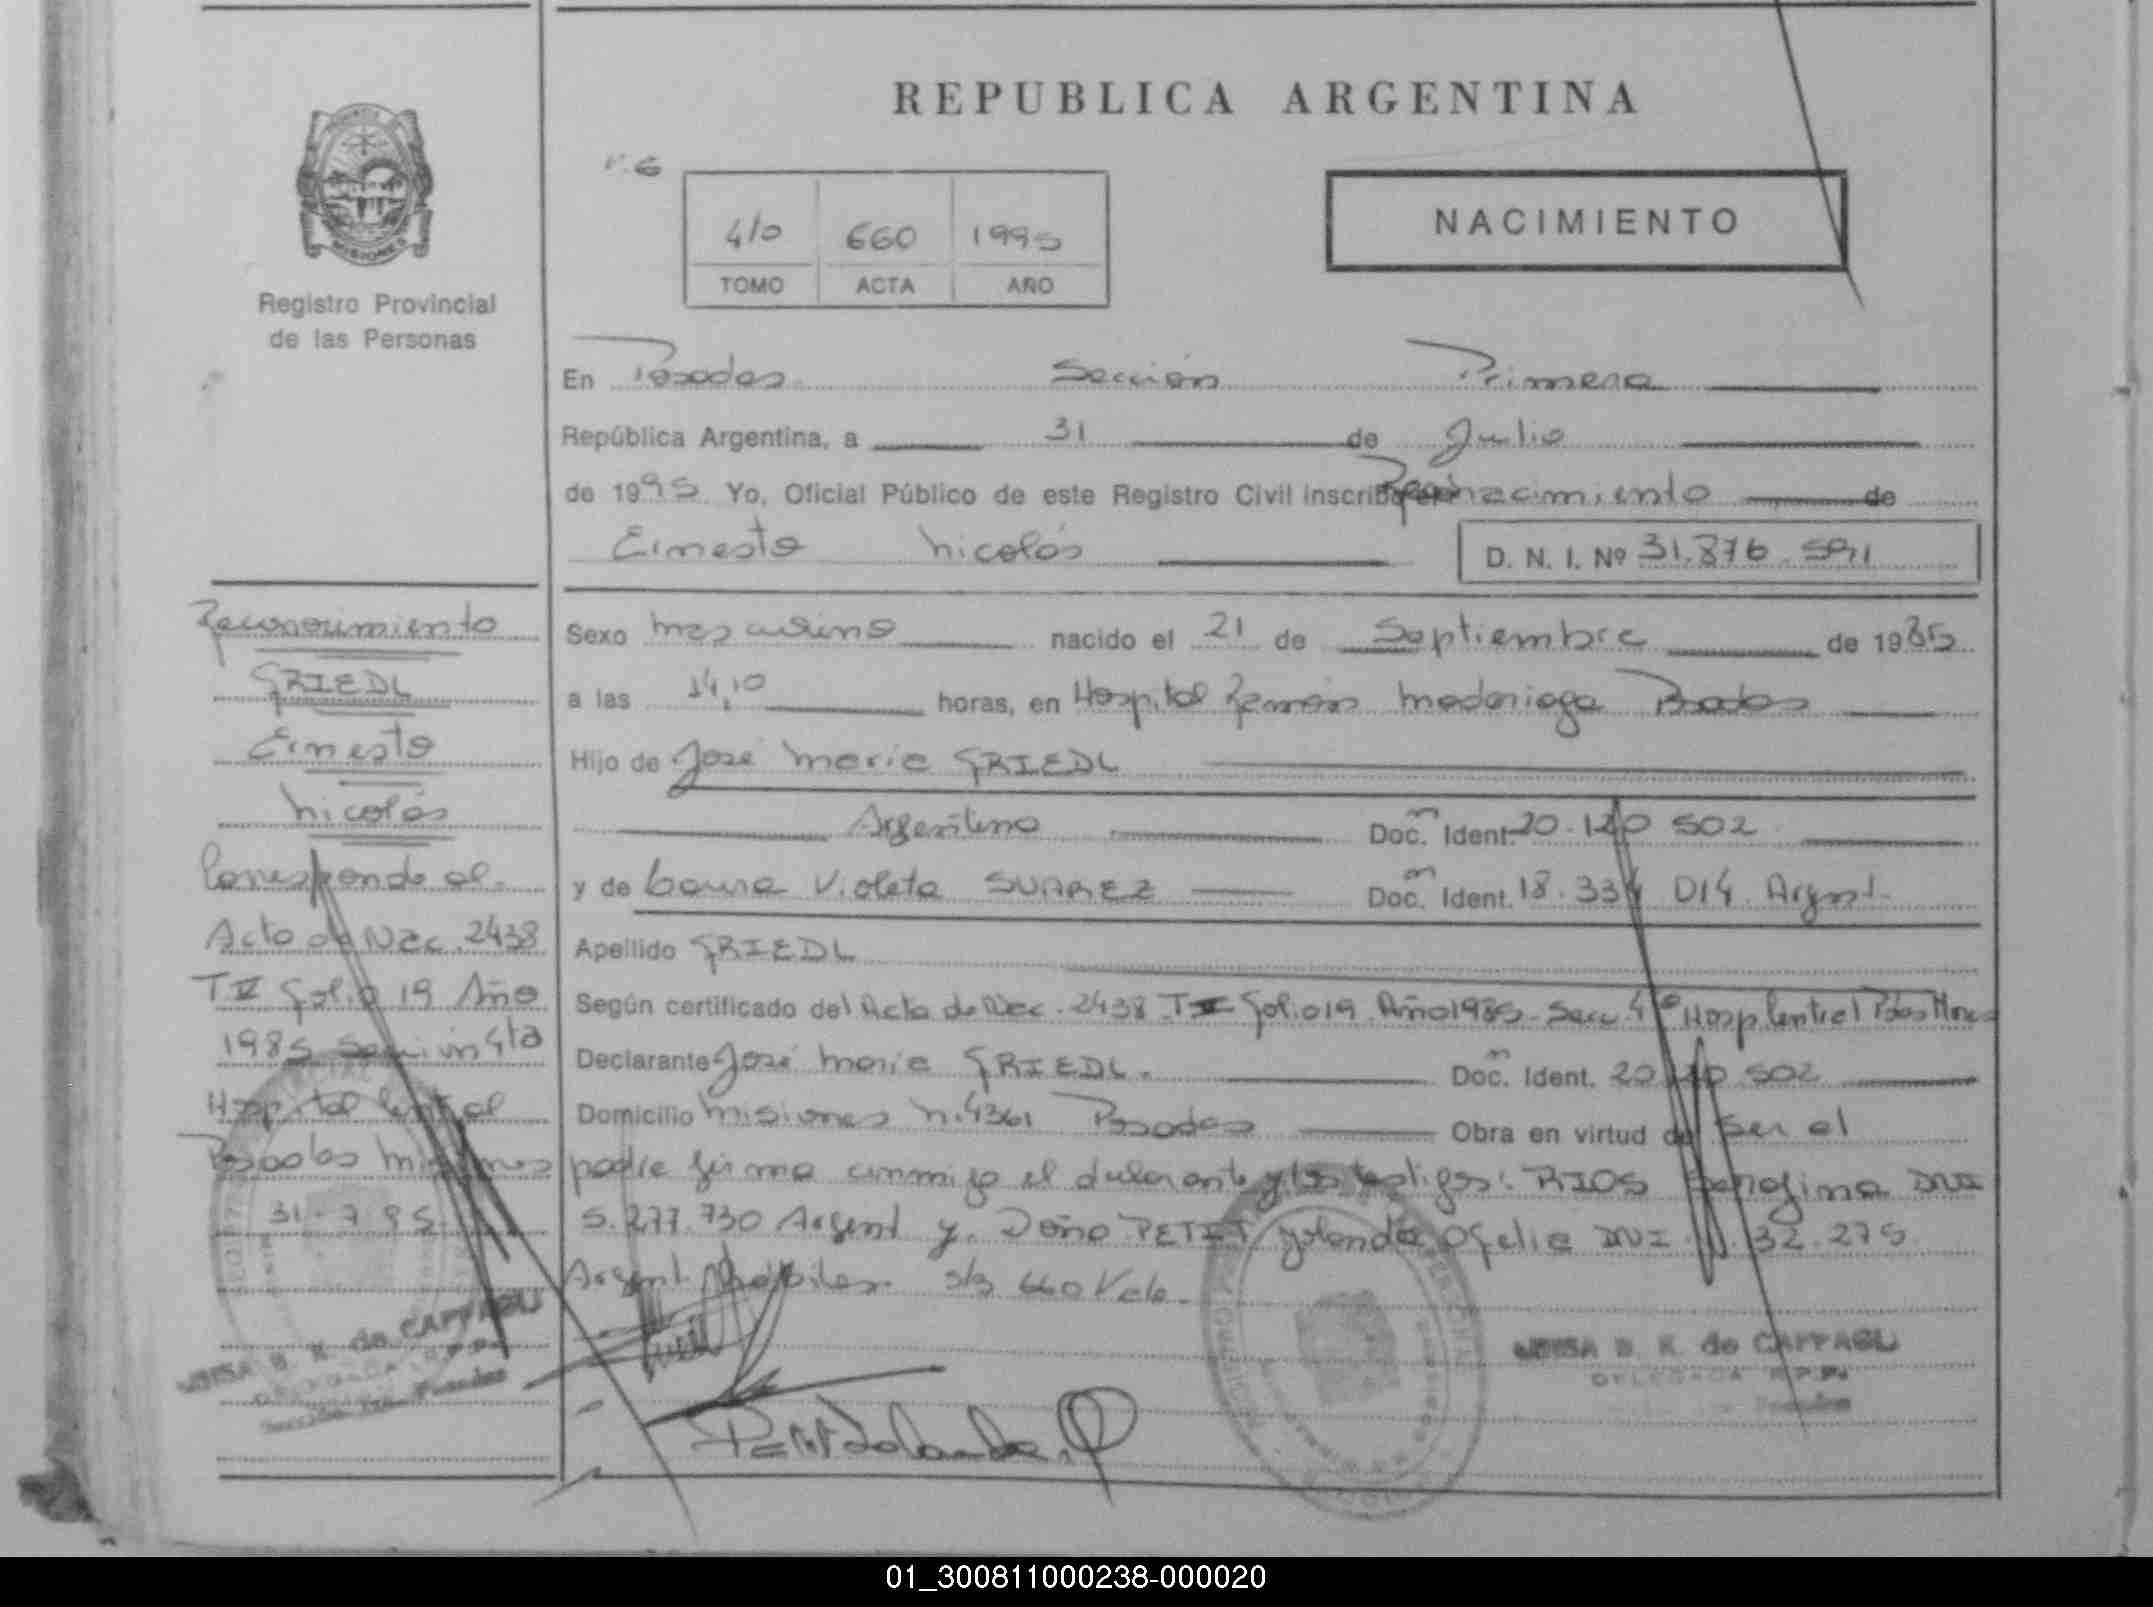 REPUBLICA ARGENTINA
MISIONES
Registro Provincial
de las Personas
4/0 660 1995
TOMO ACTA AÑO
NACIMIENTO
En Posadas Sección Primera
República Argentina, a 31 de Julio
de 1995 Yo, Oficial Público de este Registro Civil inscribo Reconocimiento de
Ernesto Nicolás
D. N. I. Nº 31.876.
Sexo masculino nacido el 21 de Septiembre de 1985
a las 14,10 horas, en Hospital Ramón Madariaga Posadas
Hijo de José Maria GRIEDL
Argentino Doc. Ident. 20.120 502
y de Laura Violeta SUAREZ Doc. Ident. 18.334 014 Argent.
Apellido GRIEDL
Según certificado del Acta de Nac. 2438 Folio 19 Año 1985 Secc 4º Hosp Central Pdas Mnes
Declarante José Maria GRIEDL. Doc. Ident. 20 120 502
Domicilio Misiones N.4361 Posadas Obra en virtud de Ser el
padre firma conmigo el declarante y los testigos: RIOS DNI
5.277.730 Argent y Doña PETIT Yolanda Ofelia DNI 32.275
Argent. Hábiles s/b 660 Vale.
Petit Yolanda O
Reconocimiento
GRIEDL
Ernesto
Nicolás
Corresponde al
Acta de Nac. 2438
Folio 19 Año
1985 Sección 4ta
Hospital Central
Posadas Misiones
31-7-95
LUISA B. K. de CAFFASU
DELEGADA R.P.P.
Sección 1ra. Posadas
LUISA B. K. de CAFFASU
DELEGADA R.P.P.
Posadas
01_300811000238-000020